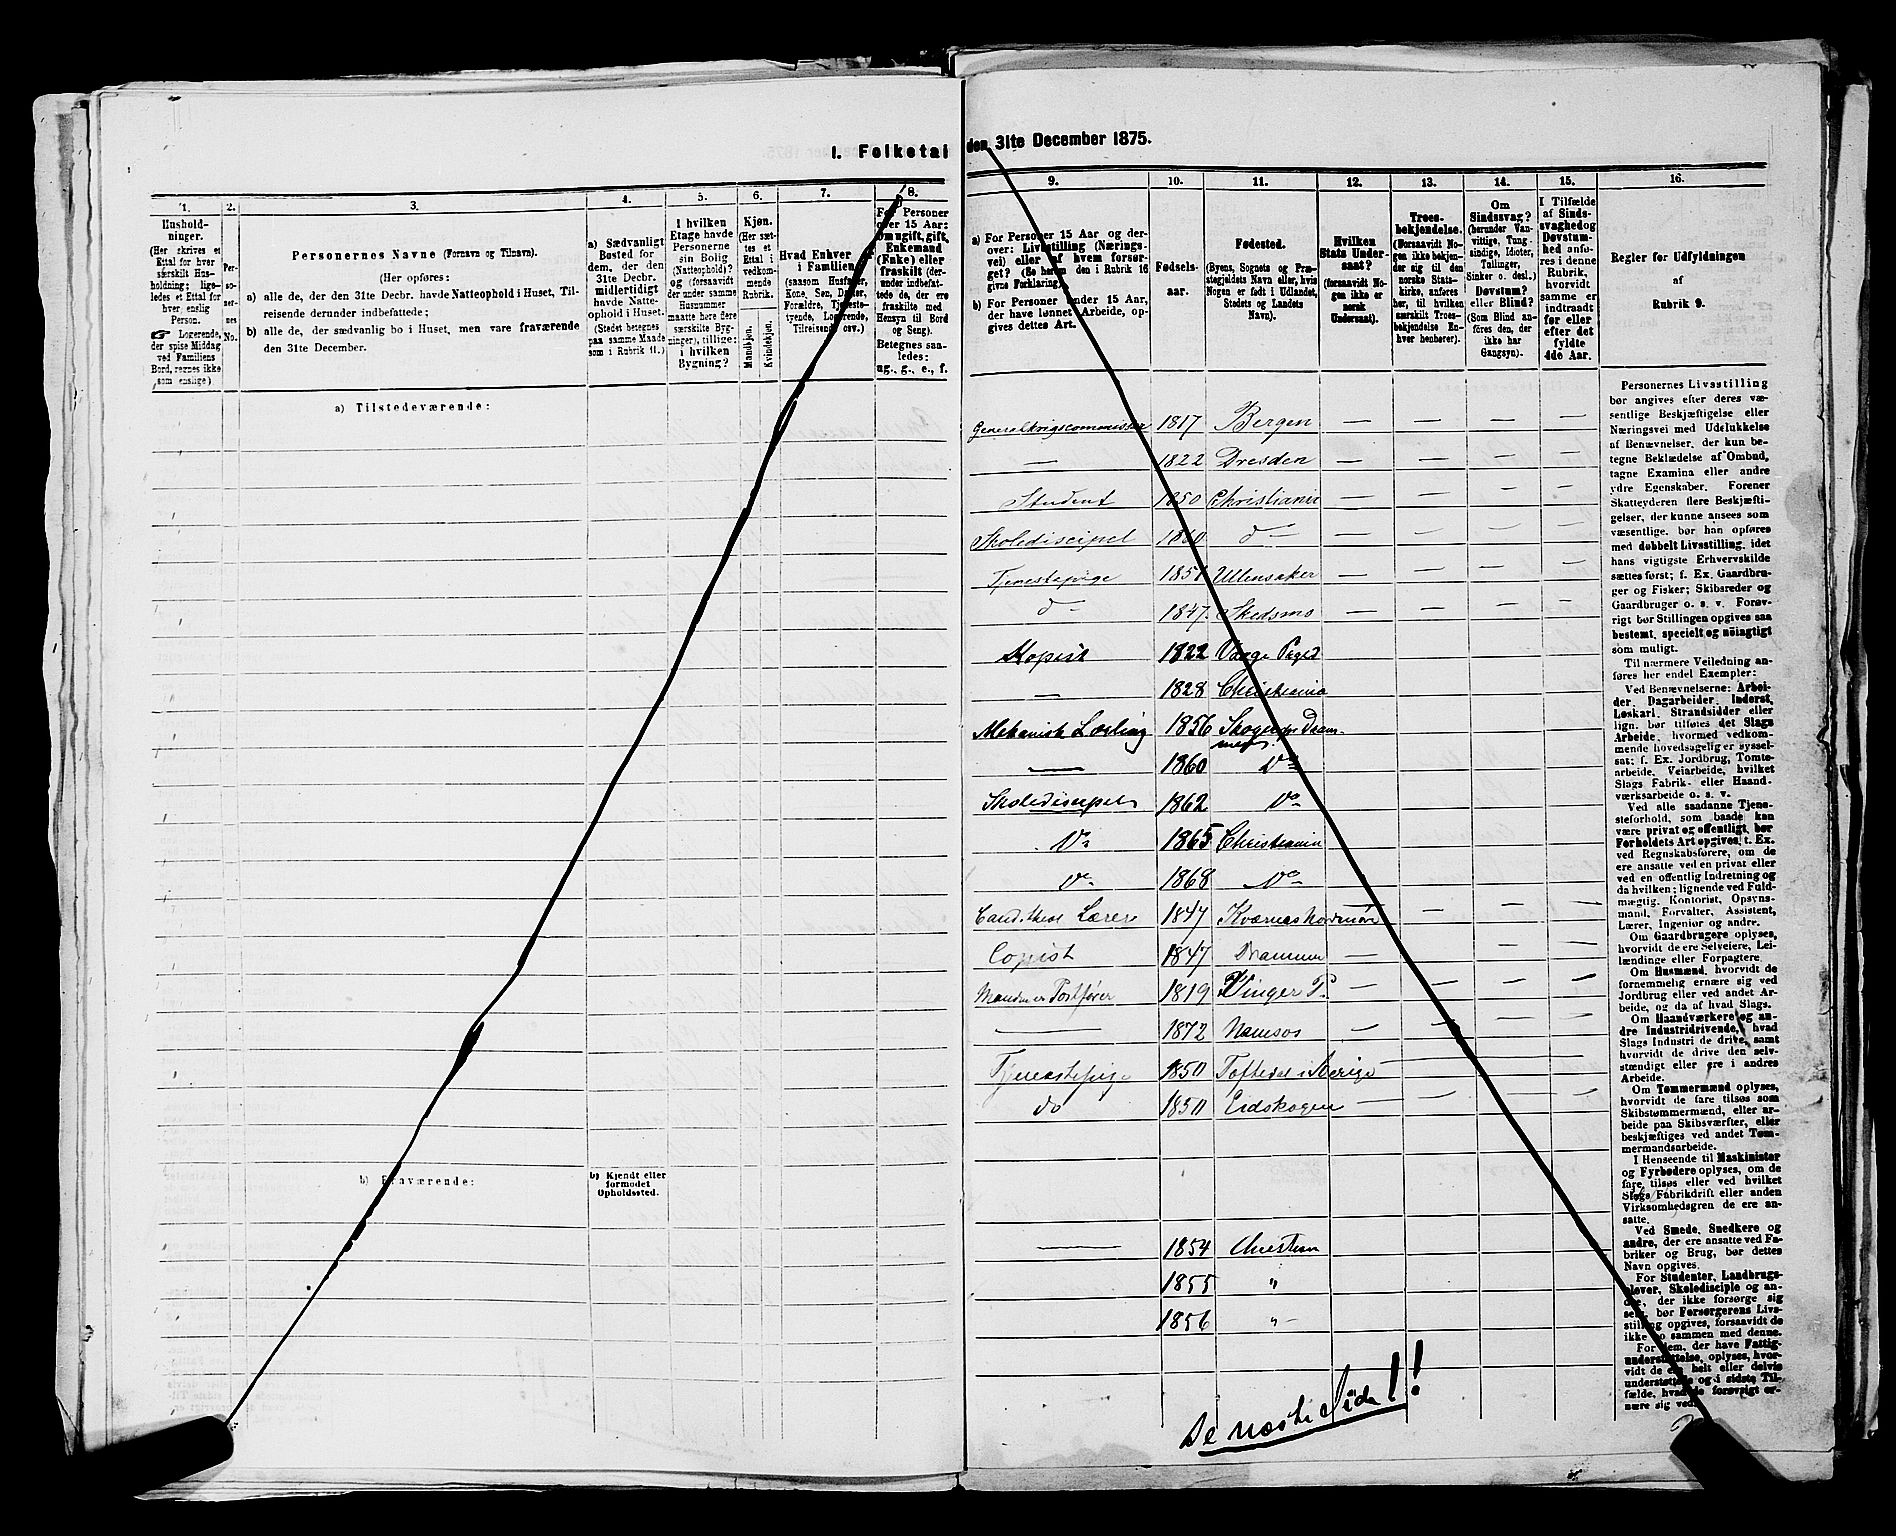 I. Folketal
den 31te December 1875.
1. 2. 3. 4. 5. 6. 7. 8.
Hushold-
ninger.
(Her skrives et
Ettal for hver
særskilt Hus-
holdning; lige-
ledes et Ettal for
hver enslig
Person.
Logerende,
der spise Middag
ved Familiens
Bord, regnes ikke
som enslige)
Per-
so-
ner-
nes
No.
Personernes Navne (Fornavn og Tilnavn).
(Her opføres:
a) alle de, der den 31te Decbr. havde Natteophold i Huset, Til-
reisende derunder indbefattede;
b) alle de, der sædvanlig bo i Huset, men vare fraværende
den 31te December.
a) Sædvanligt
Bosted for
dem, der den
31te Decbr.
midlertidigt
havde Natte-
ophold i Huset.
(Stedet betegnes
paa samme Maade
som i Rubrik 11.)
I hvilken
Etage havde
Personerne
sin Bolig
(Natteophold)?
og (forsaavidt
der under samme
Husnummer
maatte høre flere
særskilte Byg-
ninger), tillige:
i hvilken
Bygning?
Kjøn.
(Her sæt-
tes et
Ettal i
vedkom-
mende
Rubrik.
Mandkjøn.
Kvindekjøn.
Hvad Enhver
i Familien
(saasom Husfader,
Kone, Søn, Datter,
Forældre, Tjeneste-
tyende, Logerende,
Tilreisende osv.)
For Personer
over 15 Aar:
Om ugift, gift,
Enkemand
(Enke) eller
fraskilt (der-
under indbefat-
tede de, der ere
fraskilte med
Hensyn til Bord
og Seng).
Betegnes saa-
ledes:
ug., g., e., f.
a) Tilstedeværende:
b) Fraværende:
b) Kjendt eller
formodet
Opholdssted.
9. 10. 11. 12. 13. 14. 15. 16.
a) For Personer 15 Aar og der-
over: Livsstilling (Nærings-
vei) eller af hvem forsør-
get? (Se herom den i Rubrik 16
givne Forklaring.)
b) For Personer under 15 Aar,
der have lønnet Arbeide, op-
gives dettes Art.
Fødsels-
aar.
Fødested.
(Byens, Sognets og Præ-
stegjeldets Navn eller, hvis
Nogen er født i Udlandet,
Stedets og Landets
Navn).
Hvilken
Stats Under-
saat?
(forsaavidt No-
gen ikke er
norsk
Undersaat).
Troes-
bekjendelse.
(Forsaavidt No-
gen ikke bekjen-
der sig til den
norske Stats-
kirke, anføres
her, til hvilken
særskilt Troes-
bekjendelse En-
hver henhører).
Om
Sindssvag?
(herunder Van-
vittige, Tung-
sindige, Idioter,
Tullinger,
Sinker o. desl.)
Døvstum?
eller Blind?
(Som Blind an-
føres den, der
ikke har
Gangsyn).
I Tilfælde
af Sinds-
svaghed og
Døvstum-
hed anfø-
res i denne
Rubrik,
hvorvidt
samme er
indtraadt
før eller
efter det
fyldte
4de Aar.
Regler for Udfyldningen
af
Rubrik 9.
Generalkrigscommissær 1817 Bergen — — — —
— 1822 Dresden — — — —
Student 1850 Christiania — — — —
Skolediscipel 1860 d — — — — —
Tjenestepige 1851 Ullensaker — — — —
d — 1847 Skedsmo — — — —
Kopist 1822 Vaage Pgjd
— 1828 Christiania
Mekanisk Lærling 1856 Skoger pr Dram-
men.
— 1860 Do
Skolediscipel 1862 Do
Do 1865 Christiania
Do 1868 Do
Cand. theol Lærer 1847 Kværnes Nordmør — — —
Copist 1847 Drammen — — —
1819 Vinger P. — — — —
— 1872 Namsos — — — —
Tjenestepige 1850 Toftedal i Sverige — — —
do 1850 Eidskogen — — — —
— 1854 Christian
1855 "
1856 " —
Se næste Side!!
Personernes Livsstilling
bør angives efter deres væ-
sentlige Beskjæftigelse eller
Næringsvei med Udelukkelse
af Benævnelser, der kun be-
tegne Beklædelse af Ombud,
tagne Examina eller andre
ydre Egenskaber. Forener
Skatteyderen flere Beskjæfti-
gelser, der kunne ansees som
væsentlige, bør han opføres
med dobbelt Livsstilling, idet
hans vigtigste Erhvervskilde
sættes først; f. Ex. Gaardbru-
ger og Fisker; Skibsreder og
Gaardbruger o. s. v. Forøv-
rigt bør Stillingen opgives saa
bestemt, specielt og nöiagtigt
som muligt.
Til nærmere Veiledning an-
føres her endel Exempler:
Ved Benævnelserne: Arbei-
der, Dagarbeider, Inderst,
Løskarl, Strandsidder eller
lign. bør tilføies det Slags
Arbeide, hvormed vedkom-
mende hovedsagelig er syssel-
sat; f. Ex. Jordbrug, Tomte-
arbeide, Veiarbeide, hvilket
Slags Fabrik- eller Haand-
værksarbeide o. s. v.
Ved alle saadanne Tjene-
steforhold, som baade kan
være privat og offentligt, bør
Forholdets Art opgives, f. Ex.
ved Regnskabsførere, om de
ere ansatte ved en privat eller
ved en offentlig Indretning og
da hvilken; lignende ved Fuld-
mægtig, Kontorist, Opsyns-
mand, Forvalter, Assistent,
Lærer, Ingeniør og andre.
Om Gaardbrugere oplyses,
hvorvidt de ere Selveiere, Lei-
lændinge eller Forpagtere.
Om Husmænd, hvorvidt de
fornemmelig ernære sig ved
Jordbrug eller ved andet Ar-
beide, og da af hvad Slags.
Om Haandværkere og an-
dre Industridrivende, hvad
Slags Industri de drive, samt
hvorvidt de drive den selv-
stændigt eller ere i andres
Arbeide.
Om Tømmermænd oplyses,
hvorvidt de fare tilsøs som
Skibstømmermænd, eller ar-
beide paa Skibsværfter, eller
beskjæftiges ved andet Tøm-
mermandsarbeide.
I Henseende til Maskinister
og Fyrbødere oplyses, om de
fare tilsøs eller ved hvilket
Slags Fabrikdrift eller anden
Virksomhedsgren de ere an-
satte.
Ved Smede, Snedkere og
andre, der ere ansatte ved Fa-
briker og Brug, bør dettes
Navn opgives.
For Studenter, Landbrugs-
elever, Skoledisciple og an-
dre, der ikke forsørge sig
selv, bør Forsørgerens Livs-
stilling opgives, forsaavidt de
ikke bo sammen med denne.
For dem, der have Fattig-
understøttelse, oplyses, hvor-
vidt de ere helt eller delvis
understøttede og i sidste Til-
fælde, hvad de forøvrigt er-
nære sig ved.